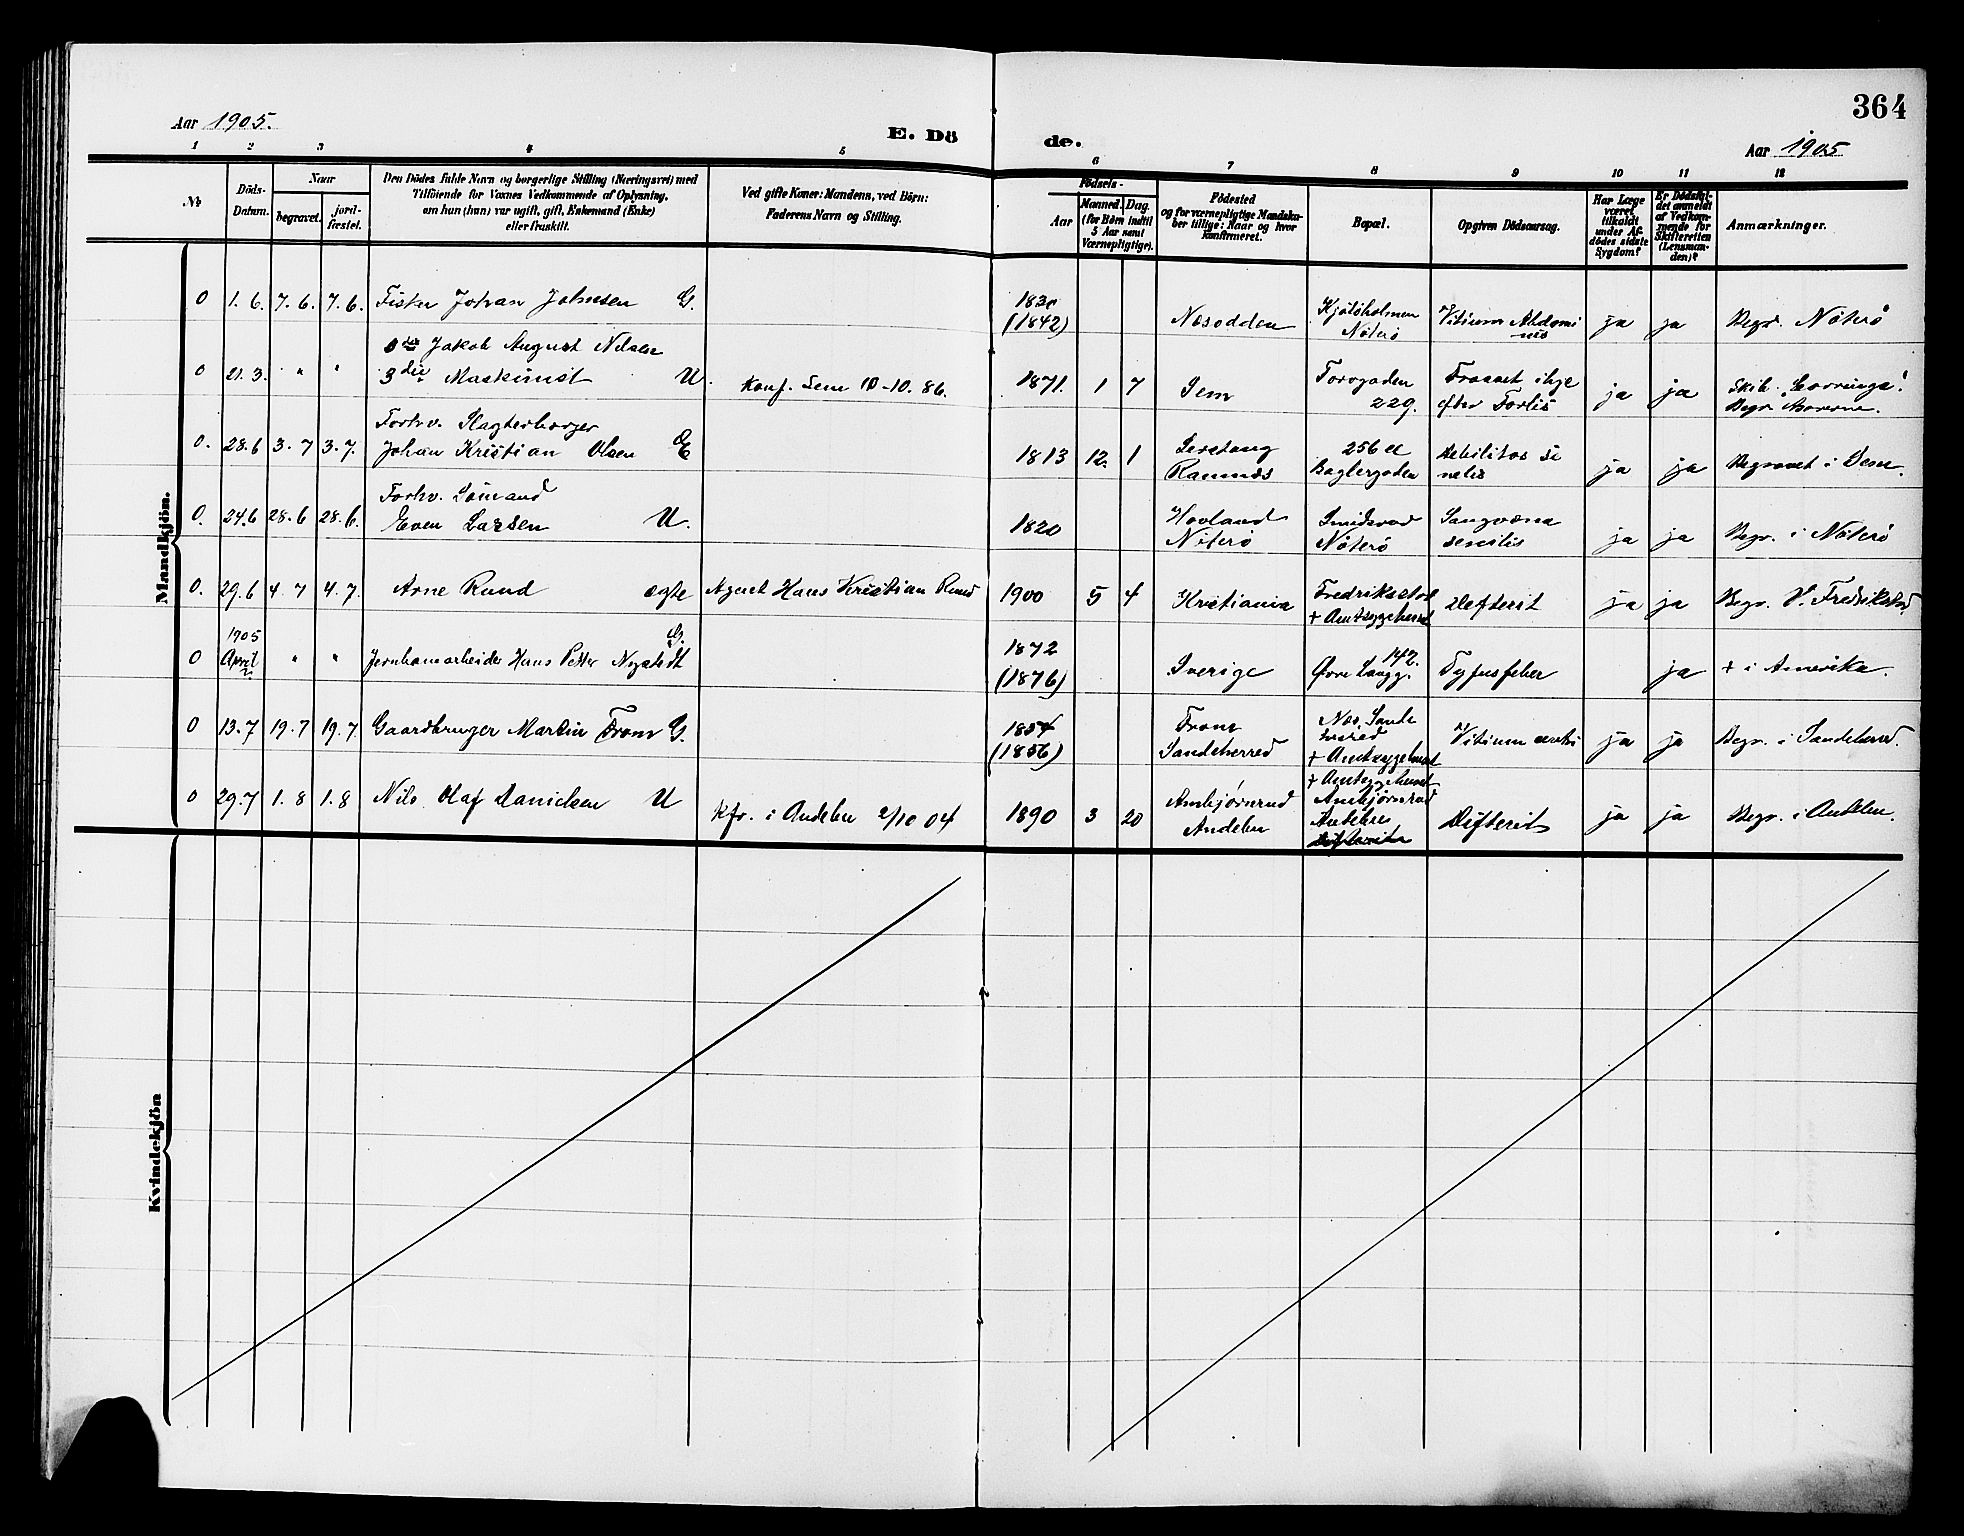 364
Aar 1905.
E. Dö de.
Aar 1905
1 2 3 4 5 6 7 8 9 10 11 12
No
Döds-
Datum.
Naar
begravet.
jord-
fæstet.
Den Dödes fulde Navn og borgerlige Stilling (Næringsvei) med
Tilföiende for Voxnes Vedkommende af Oplysning,
om han (hun) var ugift, gift, Enkemand (Enke)
eller fraskilt.
Ved gifte Koner: Mandens, ved Börn:
Faderens Navn og Stilling.
Födsels-
Aar
Maaned. Dag.
(for Börn indtil
5 Aar samt
Værnepligtige).
Födested
og for værnepligtige Mandska-
ber tillige: Naar og hvor
konfirmeret.
Bopæl.
Opgiven Dödsaarsag.
Har Læge
været
tilkaldt
under Af-
dödes sidste
Sygdom?
Er Dödsfal-
det anmeldt
af Vedkom-
mende for
Skifteretten
(Lensman-
den)?
Anmærkninger.
Mandkjön.
0 1. 6. 7. 6. 7. 6. Fisker Johan Johnsen G.
(1842) Nesodden Nöterö ja ja Begr. Nöterö
Jakob August Nilsen
0 21. 3. " " 3die Maskinist U. Konf. Sem 10-10. 86. 1871. 1 7 Sem Torvgaden 229. efter Forlis ja ja
Forhv.
0. 28.6 3. 7 3. 7. Johan Kristian Olsen E 1813 12. 1 Ramnes 256 a Baglergaden Debilitas se
nelis ja ja Begravet i Sem.
Forhv. Sömand
0. 24.6 28.6 28.6. Even Larsen U. 1820 Hovland
Nöterö Smidsrød
Nöterö senilis ja ja Begr. i Nöterö
0. 29.6 4. 7 4. 7. Arne Ruud ægte Agent Hans Kristian Ruud 1900 5 4 Kristiania Fredriksstad
+ Amtssygehuset Defterit ja ja Begr. V. Fredrikstad
1905
0 April " " Hans Petter Nystedt G. 1872
(1876) Sverige 142.
Øvre Langg. Tyfusfeber ja + i Amerika.
0 13.7 19.7 19.7. Gaardbruger Martin From G. 1854
(1856) From
Sandeherred
+ Amtssygehuset ja ja Begr. i Sandeherred.
0 29.7 1. 8 1. 8 Nils Olaf Danielsen U Kfr. i Andebu 2/10 04 1890 3 20 Ambjørnrud
Andebu + Amtssygehuset
Ambjørnrud
Andebu Difterit ja ja Begr. i Andebu.
Kvindekjön